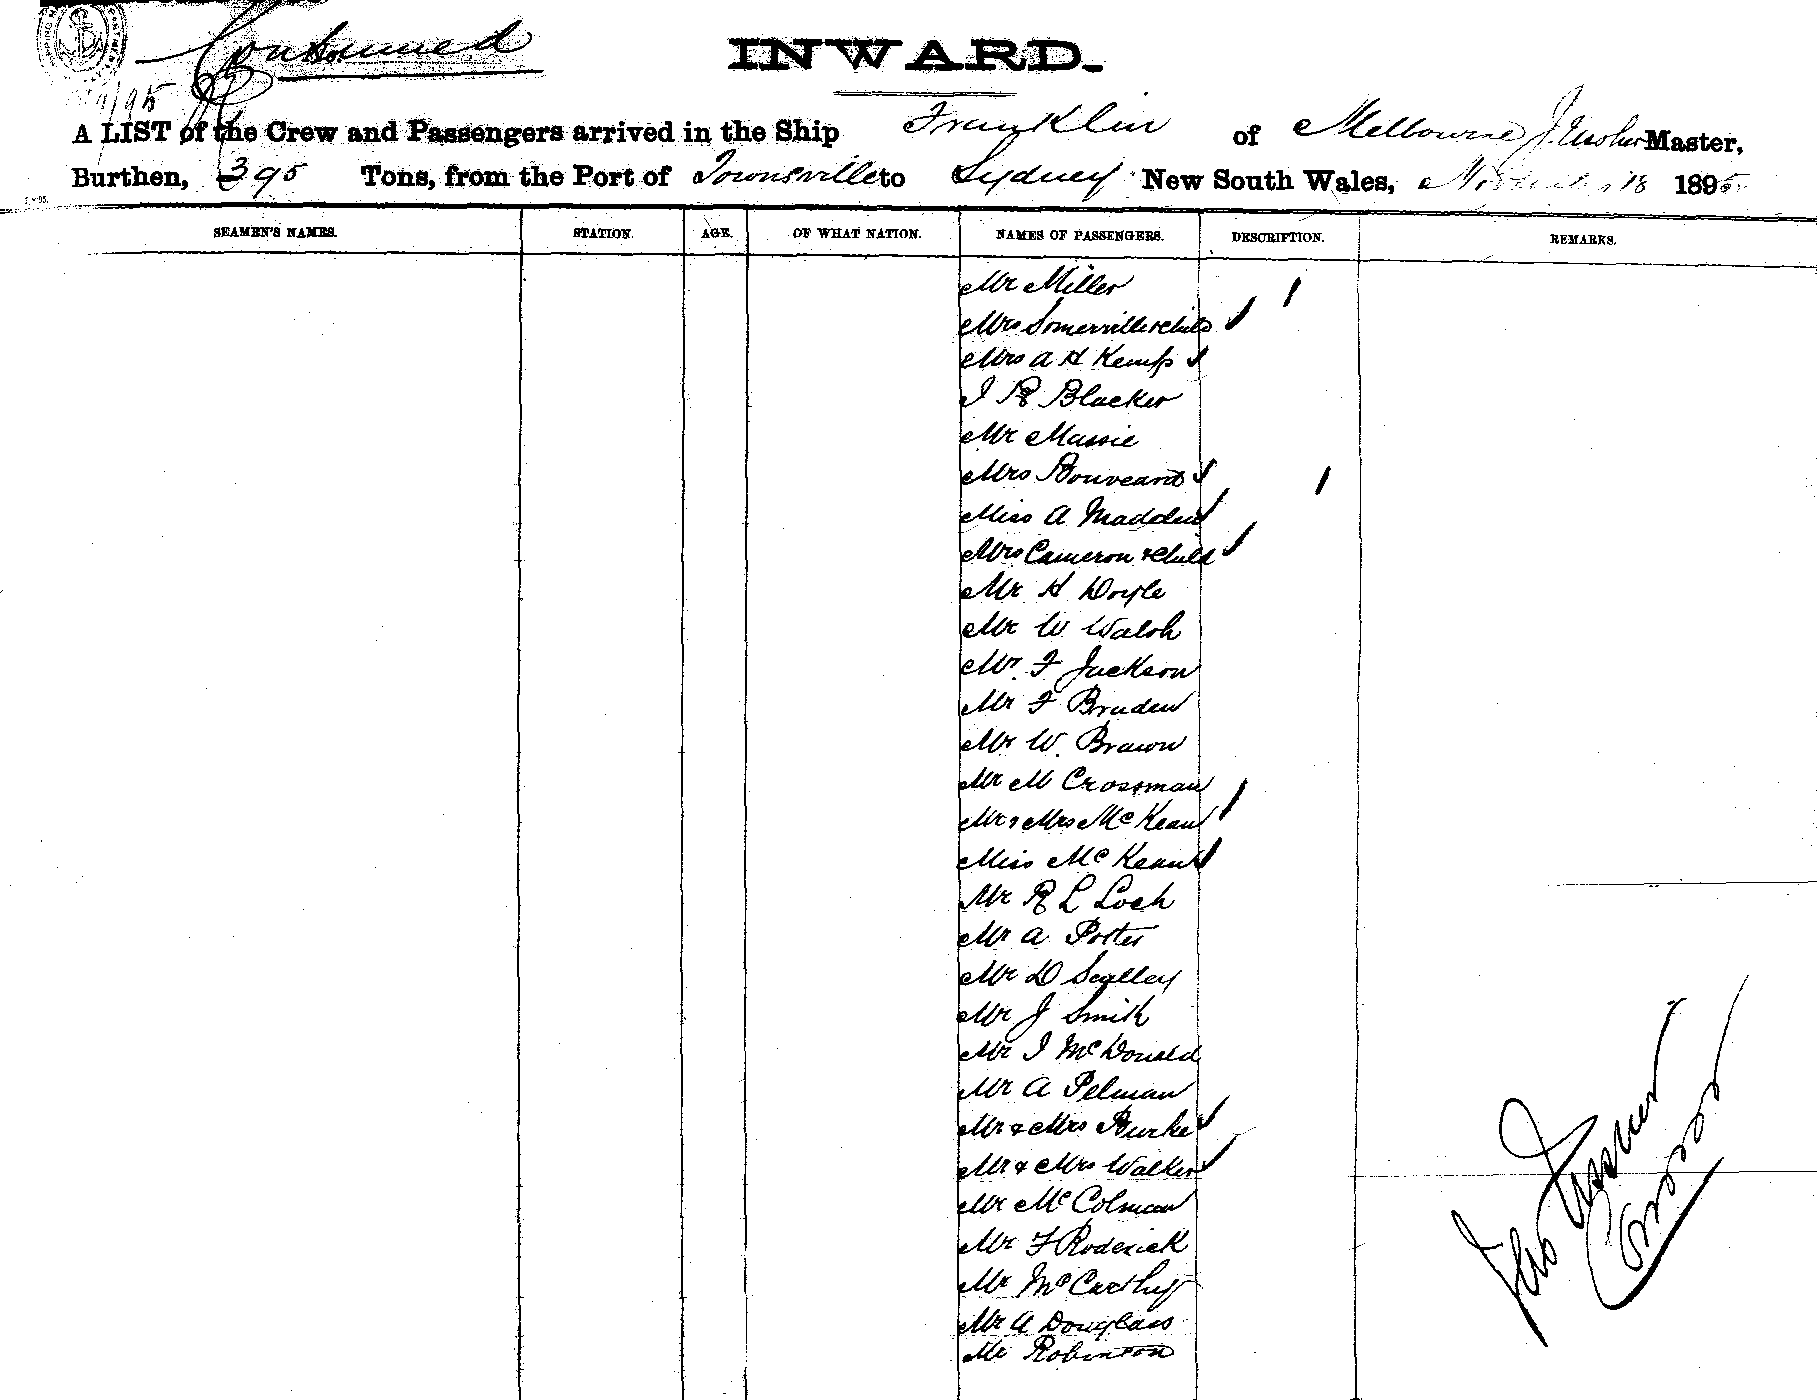 Continued
INWARD.
A LIST of the Crew and Passengers arrived in the Ship Franklin of Melbourne J. Master,
Burthen, 395 Tons, from the Port of Townsville to Sydney New South Wales, November 18 1895
SEAMEN'S NAMES. STATION. AGE. OF WHAT NATION. NAMES OF PASSENGERS. DESCRIPTION. REMARKS.
Mr Miller
Mrs Somerville & child
Mrs A H Kemp
J R Blacker
Mr Massie
Mrs Bouveard
Miss A Madden
Mrs Cameron & Child
Mr H Doyle
Mr W Walsh
Mr. F Jackson
Mr F Braden
Mr W. Brawn
Mr M Crossman
Mr & Mrs McKean
Miss McKean
Mr R L Loch
Mr A Porter
Mr D Scalley
Mr J Smith
Mr J McDonald
Mr A Pelman
Mr & Mrs Burke
Mr & Mrs Walker
Mr McColman
Mr F Roderick
Mr McCarthy
Mr A Douglass
Mr Robinson